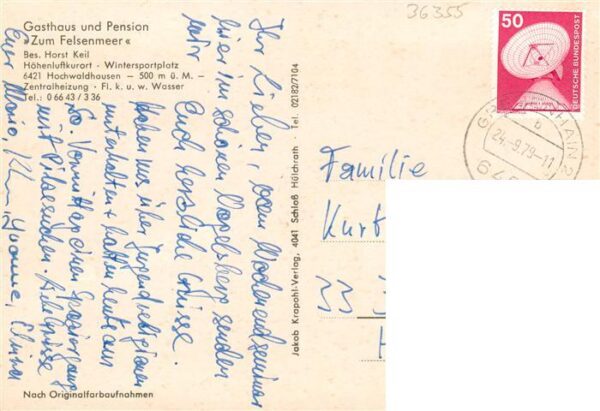 36355
Gasthaus und Pension
»Zum Felsenmeer«
Bes. Horst Keil
Höhenluftkurort - Wintersportplatz
6421 Hochwaldhausen — 500 m ü. M. —
Zentralheizung - Fl. k. u. w. Wasser
Tel.: 0 66 43 / 3 36
Ihr Lieben, vom Wochenendseminar
hier im schönen Vogelsberg senden
wir Euch herzliche Grüsse.
haben uns über Jugendreligionen
unterhalten + hatten heute am
So. Vormittag einen Spaziergang
mit Pilzesuchen.
Eure Maria, Klaus, Yvonne,
Nach Originalfarbaufnahmen
Jakob Krapohl-Verlag, 4041 Schloß Hülchrath · Tel. 02182/7104
50
DEUTSCHE BUNDESPOST
24.-9.79-11
b
Familie
Kurt